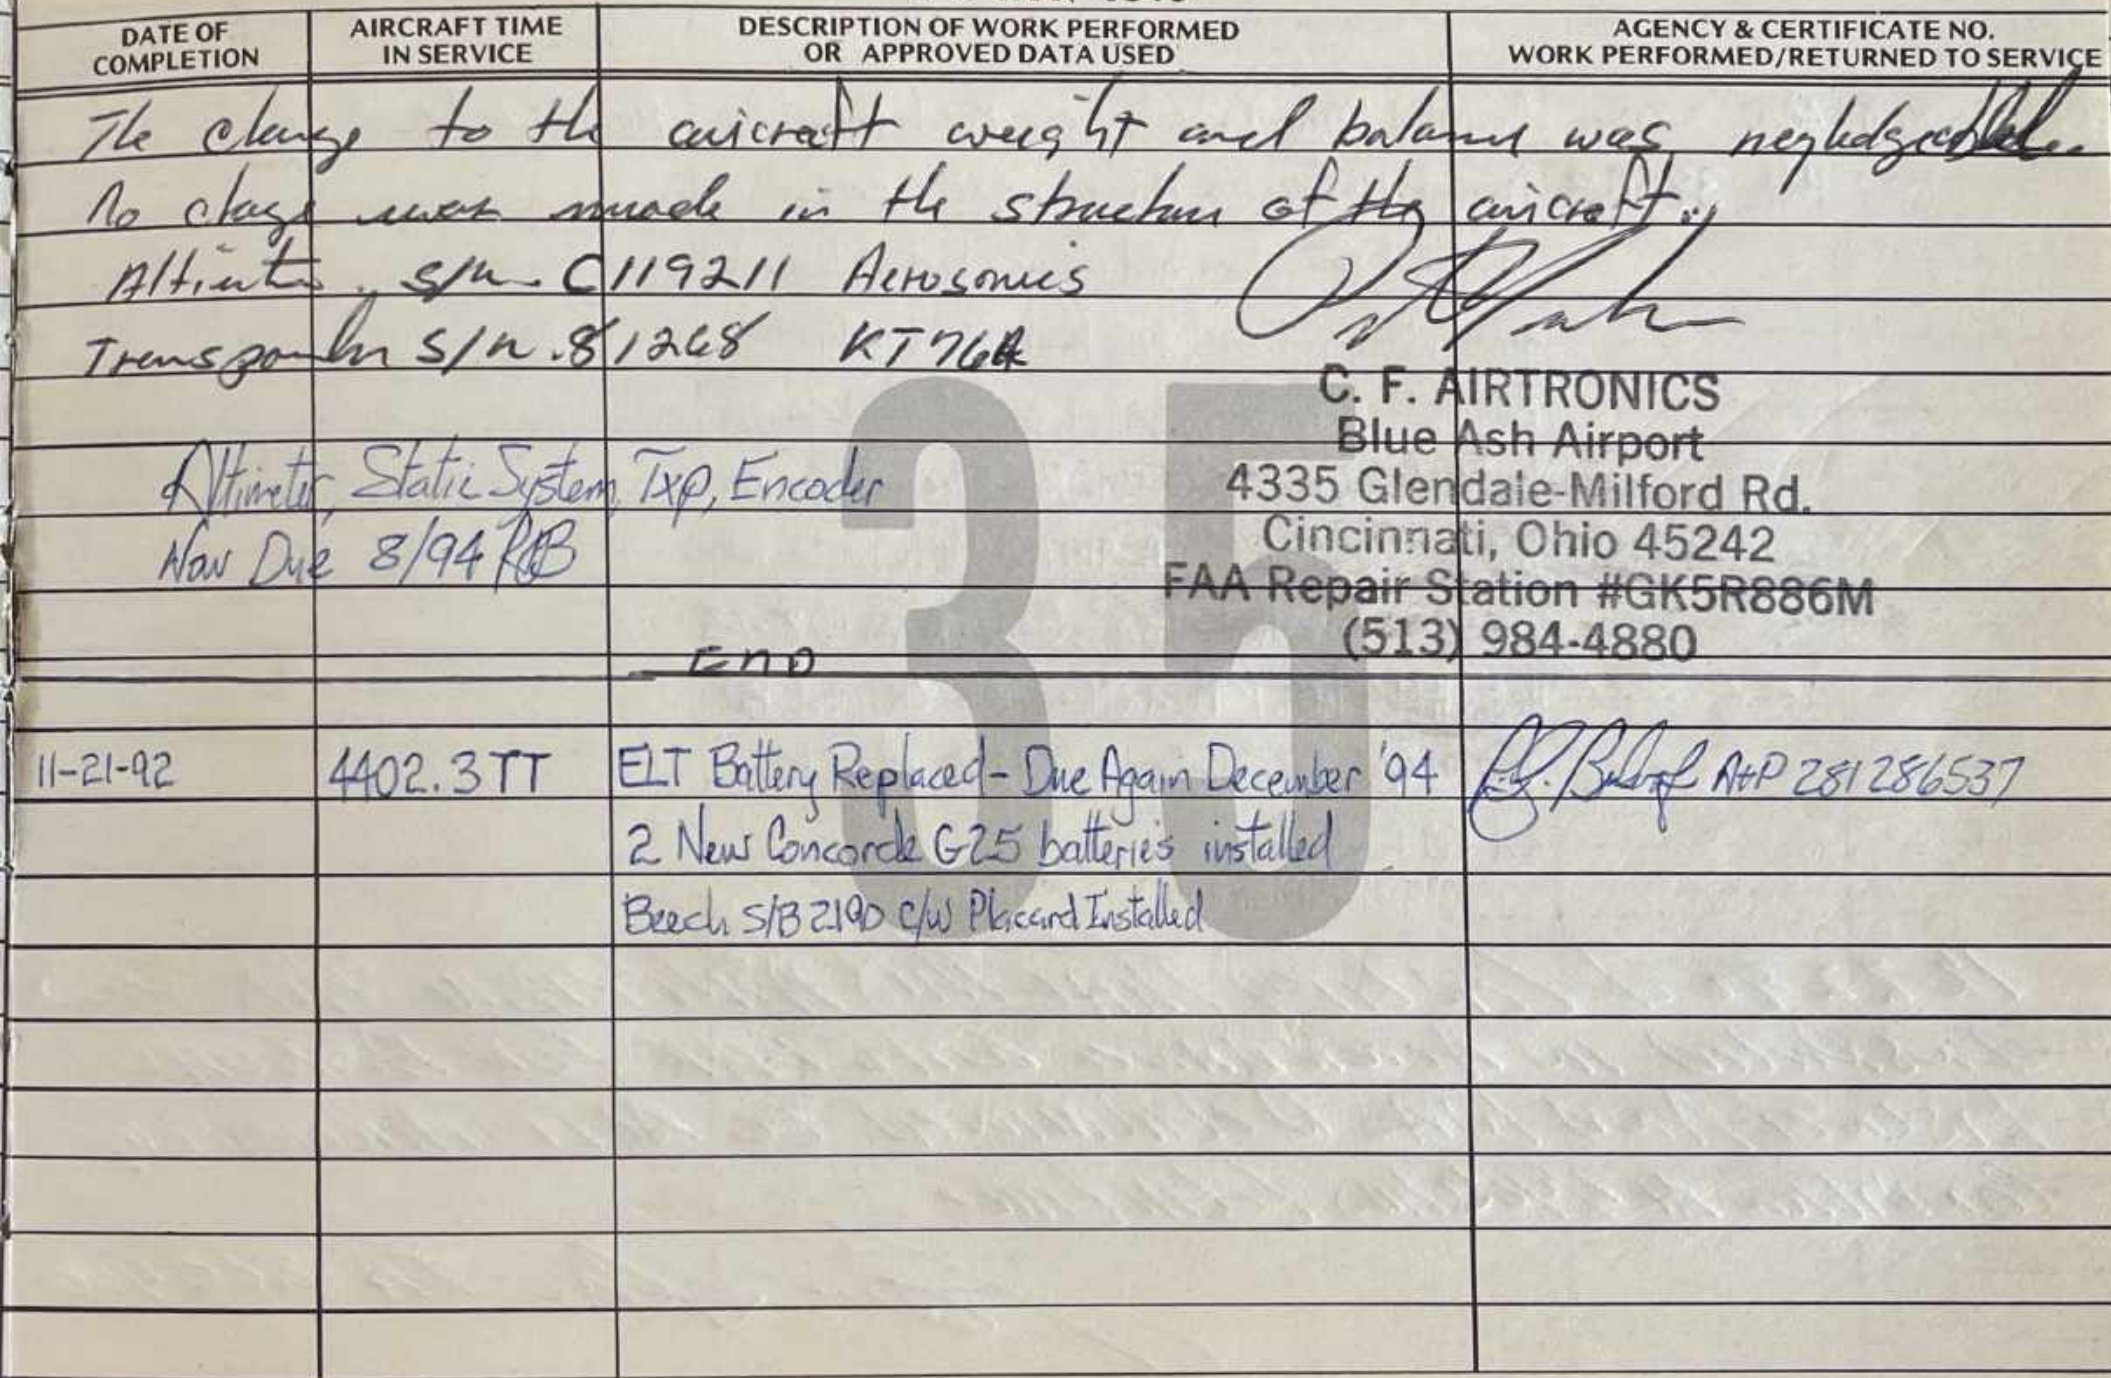 DATE OF COMPLETION
AIRCRAFT TIME IN SERVICE
DESCRIPTION OF WORK PERFORMED OR APPROVED DATA USED
AGENCY & CERTIFICATE NO. WORK PERFORMED/RETURNED TO SERVICE
The change to the aircraft weight and balance was
No change was made in the structure of the aircraft.
S/N C119211 Aerosonics
Transponder S/N. 81268 KT76A
C. F. AIRTRONICS
Blue Ash Airport
4335 Glendale-Milford Rd.
Cincinnati, Ohio 45242
FAA Repair Station #GK5R886M
(513) 984-4880
Altimeter, Static System, Txp, Encoder
Now Due 8/94 RGB
END
35
11-21-92 4402.3 TT ELT Battery Replaced - Due Again December '94 A+P 281286537
2 New Concorde G25 batteries installed
Beech S/B 2190 c/w Placard Installed